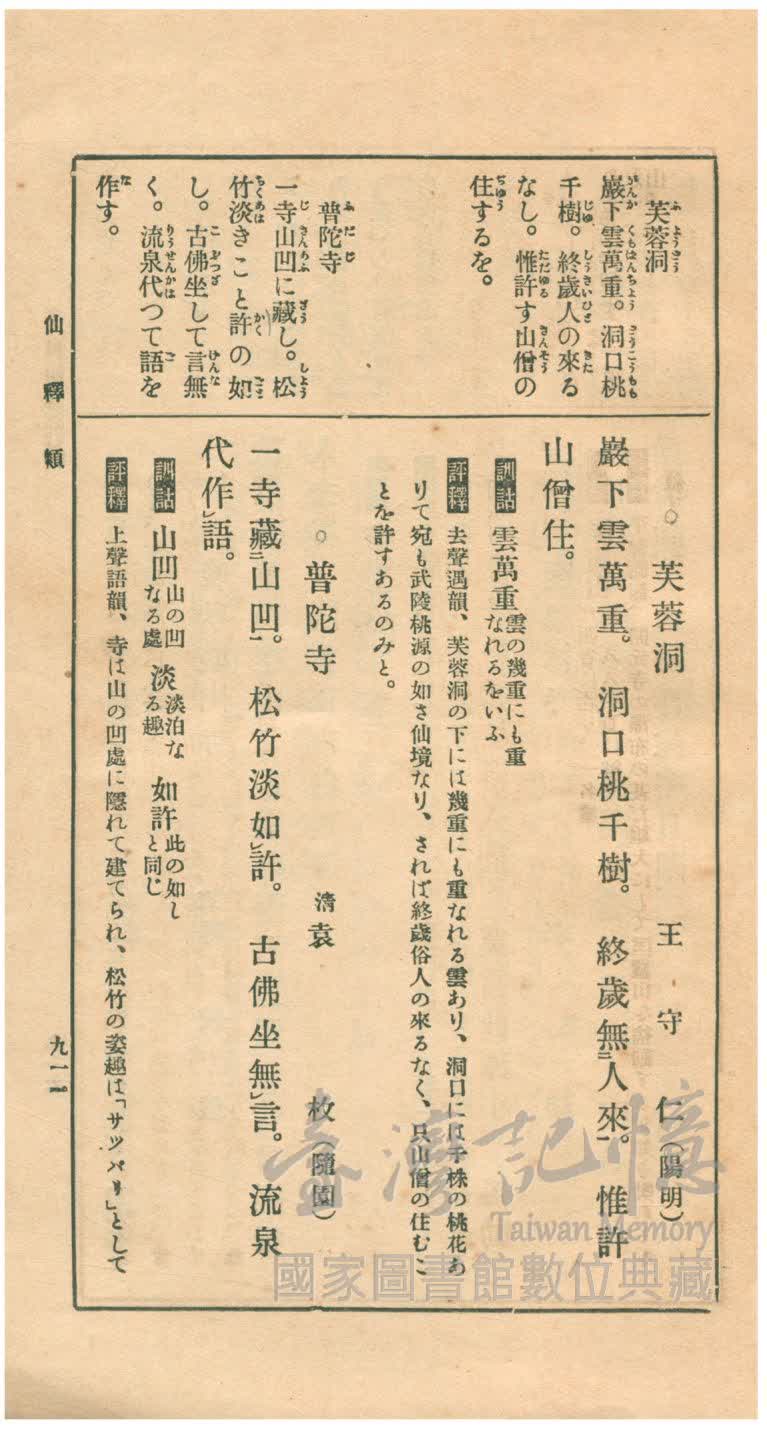 芙蓉洞
巖下雲萬重。洞口桃
千樹。終歲人の來る
なし。惟許す山僧の
住するを。
普陀寺
一寺山凹に藏し。松
竹淡きこと許の如
し。古佛坐して言無
く。流泉代つて語を
作す。
○芙蓉洞 王守仁（陽明）
巖下雲萬重。洞口桃千樹。終歲無二人來一。惟許
山僧住。
訓詁 雲萬重 雲の幾重にも重なれるをいふ
評釋 去聲遇韻、芙蓉洞の下には幾重にも重なれる雲あり、洞口には千株の桃花あ
りて宛も武陵桃源の如き仙境なり、されば終歲俗人の來るなく、只山僧の住むこ
とを許すあるのみと。
○普陀寺 清袁枚（隨園）
一寺藏二山凹一。松竹淡如レ許。古佛坐無レ言。流泉
代作レ語。
訓詁 山凹 山の凹なる處 淡 淡泊なる趣 如許 此の如しと同じ
評釋 上聲語韻、寺は山の凹處に隱れて建てられ、松竹の姿趣は「サツパリ」として
仙釋類
九一一
臺灣記憶
Taiwan Memory
國家圖書館數位典藏